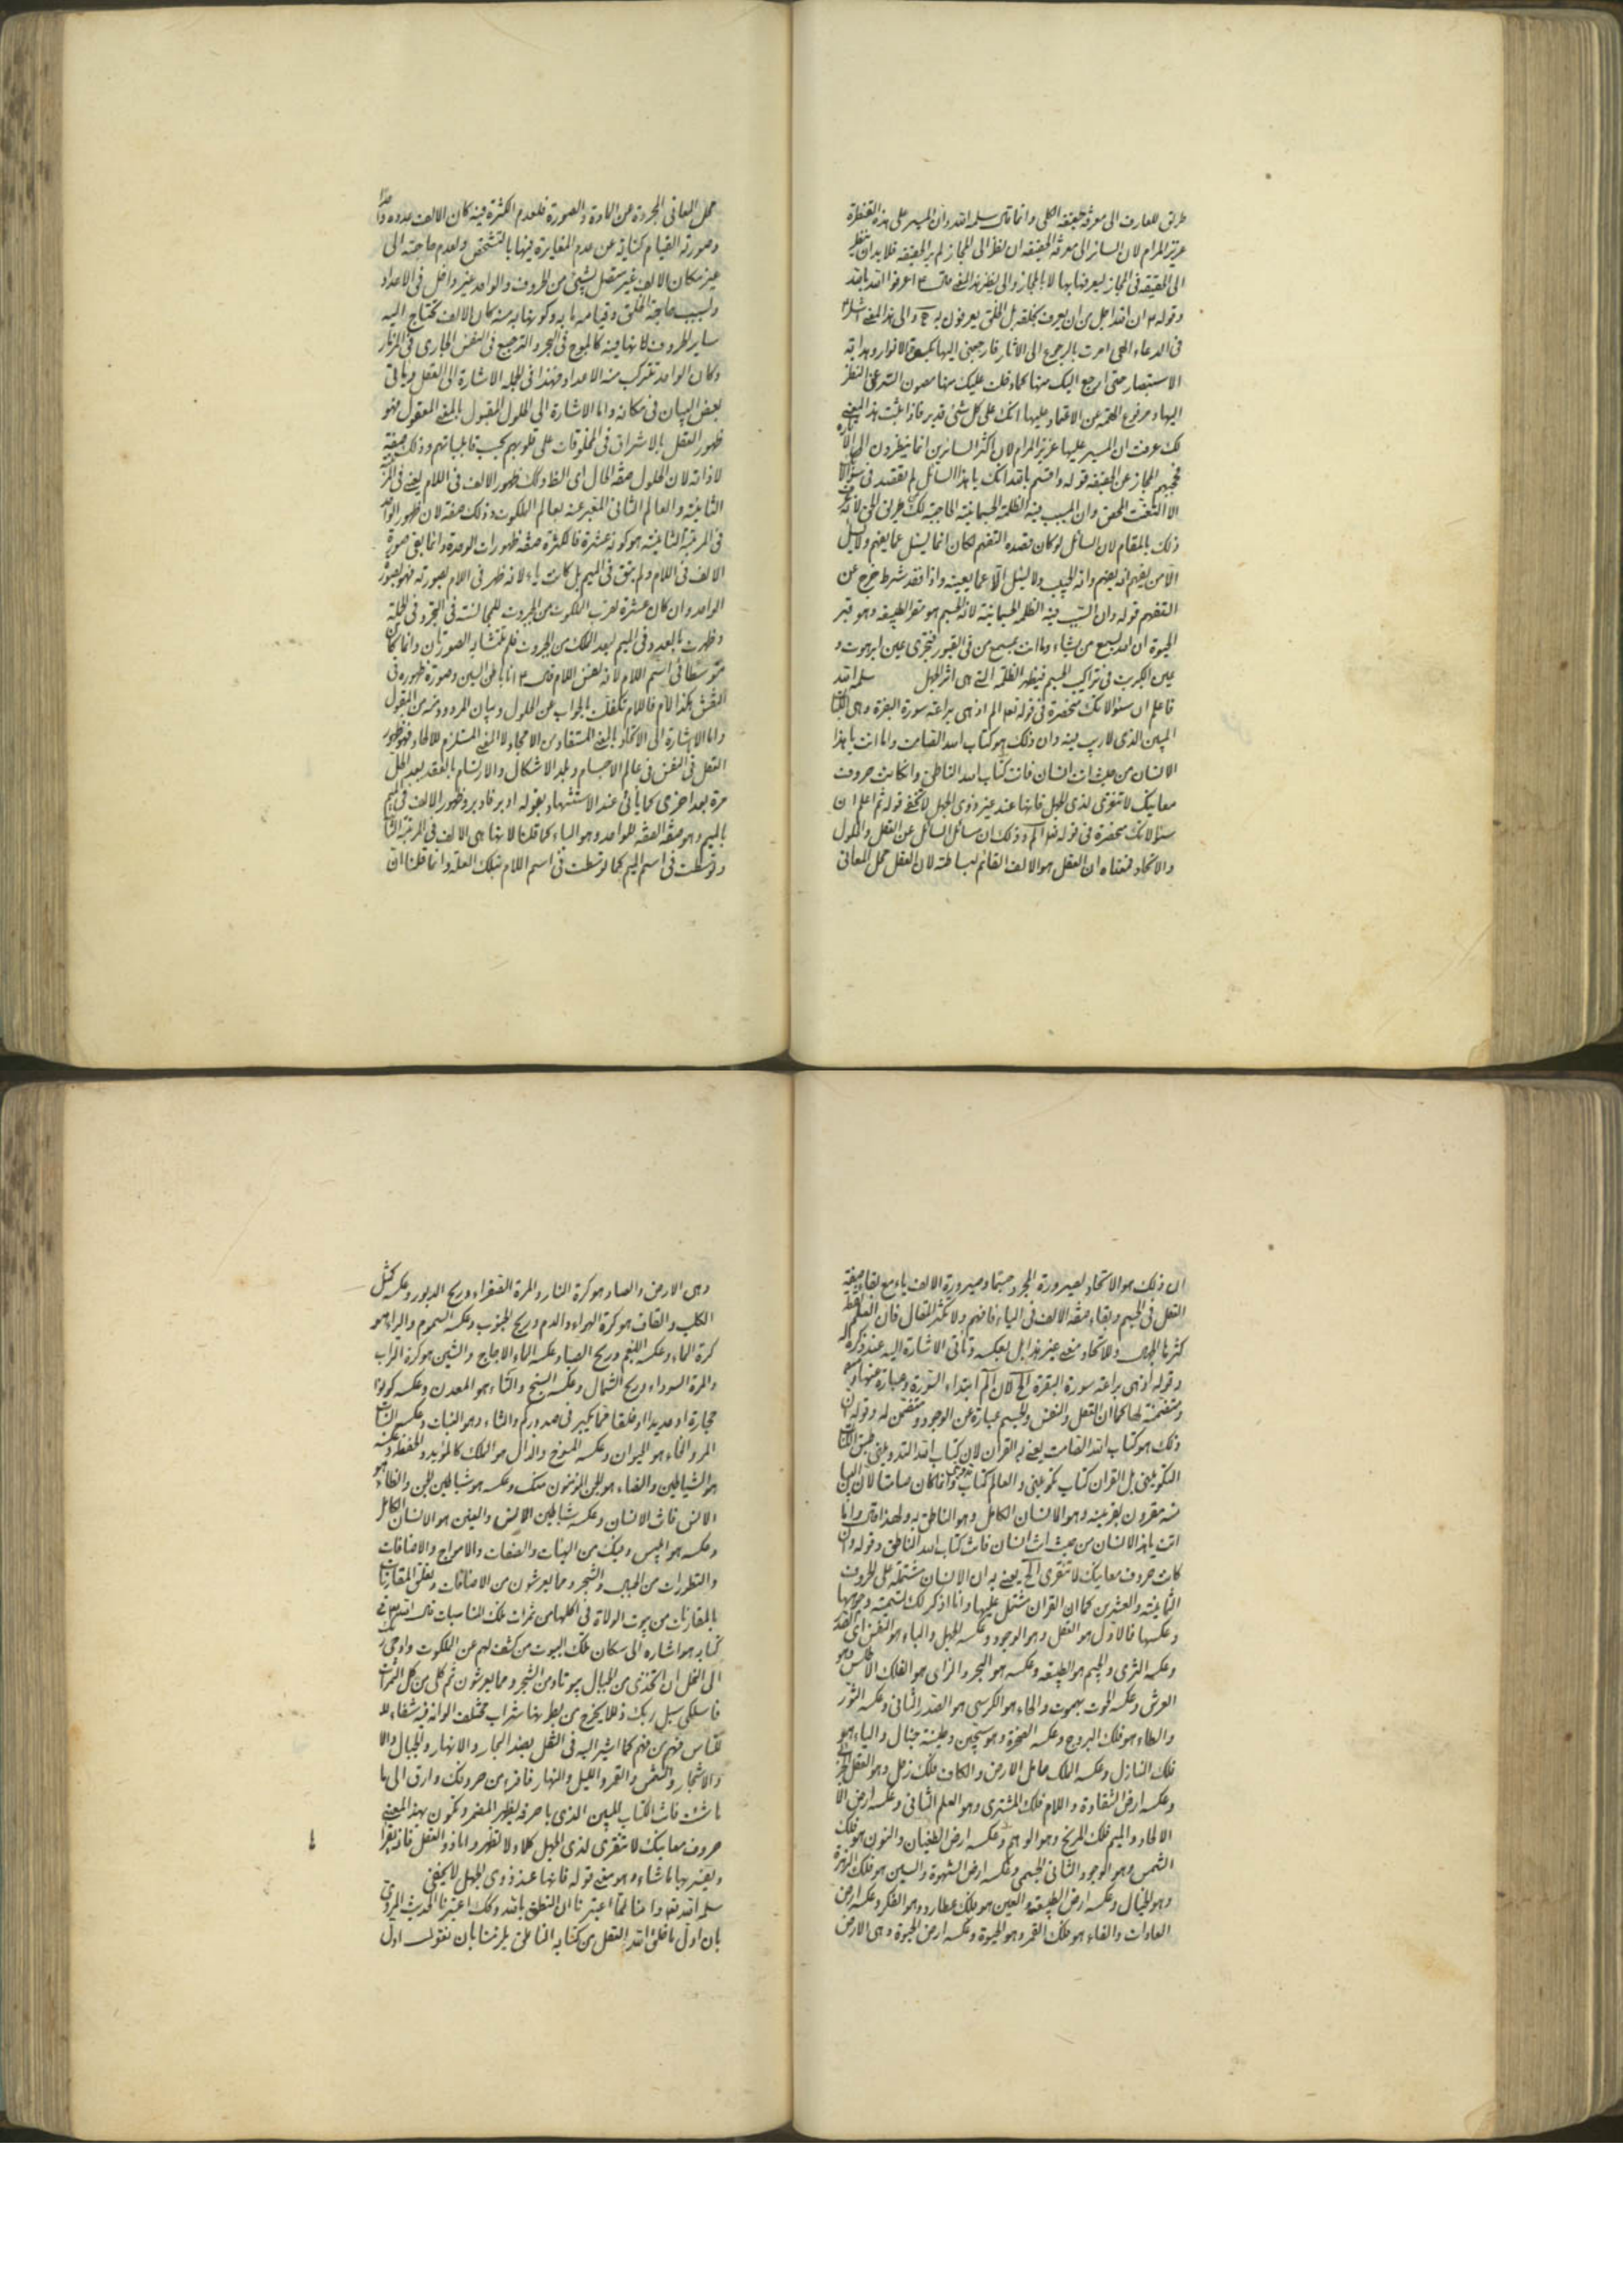 طريق للعارف الى معرفة حقيقة الكلى وانما قال سلمه الله وان المسير على هذه القنطرة
عزيز المرام لان السائر الى معرفة الحقيقة ان نظر الى المجاز لم ير الحقيقة فلا بد ان ينظر
الى الحقيقة فى المجاز ليعرفها بها لا بالمجاز والى نظر هذا المعنى قال ع اعرفوا الله بالله
وقوله ع ان الله اجل من ان يعرف بخلقه بل الخلق يعرفون به والى هذا المعنى اشار ع
فى الدعاء الهى امرت بالرجوع الى الاثار فارجعنى اليها بكسوة الانوار وهداية
الاستبصار حتى ارجع اليك منها كما دخلت عليك منها مصون السر عن النظر
اليها ومرفوع الهمة عن الاعتماد عليها انك على كل شئ قدير فاذا ثبت هذا المعنى
لك عرفت ان المسير عليها عزيز المرام لان اكثر السائرين انما ينظرون الى الاثار
فحجبهم المجاز عن الحقيقة قوله واقسم بالله انك يا هذا السائل لم تقصد فى سؤالك
الا التعنت المحض وان المسبب فيه الظلمة الجسمانية الحاجبة لك عن
ذلك بالمقام لان السائل لو كان قصده التفهم لكان انما يسئل عما يفهم ولا يسئل
الا من يفهم انه يفهم وانه المجيب ولا يسئل الا عما يعينه واذا فقد شرط خرج عن
التفهم قوله وان السبب فيه الظلمة الجسمانية لان الجسم هو مقر الطبيعة وهو قبر
الحيوة ان الله يسمع من يشاء وما انت بمسمع من فى القبور فتجرى عين ابرهوت و
عين الكبريت فى تراكيب الجسم فيظهر الظلمة التى هى اثر الجهل سلمه الله
فاعلم ان سئوالاتك منحصرة فى قوله تعالى الم اذ هى براعة سورة البقرة وهى الكتاب
المبين الذى لا ريب فيه وان ذلك هو كتاب الله الصامت واما انت يا هذا
الانسان من حيث انت انسان فانت كتاب الله الناطق وان كانت حروف
معانيك لا تتقرى لذى الجهل فانها عند غير ذوى الجهل لا تخفى قوله ثم اعلم ان
سئوالاتك منحصرة فى قوله تعالى الم وذلك ان مسائل السائل عن العقل والحلول
والاتحاد فمعناه ان العقل هو الالف القائم لبساطته لان العقل محل المعانى
محل المعانى المجردة عن المادة والصورة فلعدم الكثرة فيه كان الالف عدده واحدا
وصورته القيام كناية عن عدم المغايرة فيها بالتشخص ولعدم حاجته الى
غيره كان الالف غير متصل بشئ من الحروف والواحد غير داخل فى الاعداد
ولسبب حاجة الخلق وقيامه بايه وكونها به منه كان الالف تحتاج اليه
ساير الحروف لانها فيه كالموج فى البحر والترجيع فى النفس الجارى فى المزمار
وكان الواحد تتركب منه الاعداد فهذا فى الجملة الاشارة الى العقل وياتى
بعض البيان فى مكانه واما الاشارة الى الحلول المقبول بالمعنى المعقول فهو
ظهور العقل بالاشراق فى المخلوقات على قلوبهم بحسب قابلياتهم وذلك صفته
لا ذاته لان الحلول صفة الحال اى الظاهر وذلك ظهور الالف فى اللام يعنى فى المرتبة
الثانية والعالم الثانى المعبر عنه بعالم الملكوت وذلك صفة لان ظهور الواحد
فى المرتبة الثانية هو كونه عشرة فالكثرة صفة ظهورات الوحدة وانما بقى صورة
الالف فى اللام ولم يبق فى الميم بل كانت ياء لانه ظهر فى اللام بصورته فهو بصورة
الواحد وان كان عشرة لقرب الملكوت من الجبروت للمجانسة فى التجرد فى الجملة
وظهرت بالعدد فى الميم لبعد الملك من الجبروت فلم تتشابه الصورتان وانما كان
متوسطا فى اسم اللام لانه نفس اللام قال ع انا باطن السين وصورة ظهوره فى
النقش هكذا لام فاللام تكفلت بالجواب عن الحلول وبيان المردود منه من المقبول
واما الاشارة الى الاتحاد بالمعنى المستفاد من الامجاد لا المعنى المستلزم للالحاد فهو ظهور
العقل فى النفس فى عالم الاجسام وبلد الاشكال والارتسام بالعقد بعد الحل
مرة بعد اخرى كما ياتى عند الاستشهاد بقوله ادبر فادبر وظهور الالف فى الميم
بالميم وهو صفة الصفة للواحد وهو الياء كما قلنا لانها هى الالف فى المرتبة الثانية
وتوسطت فى اسم الميم كما توسطت فى اسم اللام بتلك العلة وانما قلنا ان
ان ذلك هو الاتحاد لصيرورة المجرد جسما وصيرورة الالف ياء مع بقاء صفة
العقل فى الجسم وبقاء صفة الالف فى الياء فافهم ولا تكثر المقال فان العلم نقطة
كثرها الجهل وللاتحاد معنى غير هذا بل بعكسه وتأتى الاشارة اليه عند ذكره
وقوله اذ هى براعة سورة البقرة الخ لان الم ابتداء السورة وعبارة عنها
ومتضمنة لها كما ان العقل والنفس والجسم عبارة عن الوجود ومتضمن له وقوله ان
ذلك هو كتاب الله الصامت يعنى به القران لان كتاب الله التدوينى طبق الكتاب
التكوينى بل القران كتاب تكوينى والعالم كتاب وانما كان صامتا لان البيان
منه مقرون بغرضه وهو الانسان الكامل وهو الناطق به ولهذا قال واما
انت يا هذا الانسان من حيث انت انسان فانت كتاب الله الناطق وقوله وان
كانت حروف معانيك لا تتقرى الخ يعنى به ان الانسان مشتملة على الحروف
الثمانية والعشرين كما ان القران مشتمل عليها وانا اذكر لك
وعكسها فالاول هو العقل وهو الوجود وعكسه الجهل والباء هو النفس اى
وعكسه الثرى والجيم هو الطبيعة وعكسه هو البحر والزاى هو الفلك الاطلس وهو
العرش وعكسه الحوت بهموت والحاء هو الكرسى هو الصدر الثانى وعكسه الثور
والطاء هو فلك البروج وعكسه الصخرة وهو سجين وطينة خبال والياء هو
فلك المنازل وعكسه الملك حامل الارض والكاف فلك زحل وهو العقل
وعكسه ارض الشقاوة واللام فلك المشترى وهو العلم الثانى وعكسه ارض
الالحاد والميم فلك المريخ وهو الوهم وعكسه ارض الطغيان والنون هو فلك
الشمس وهو الوجود الثانى الجسمى وعكسه ارض الشهوة والسين هو فلك الزهرة
وهو الخيال وعكسه ارض الطبيعة والعين هو فلك عطارد وهو الفكر وعكسه ارض
العادات والفاء هو فلك القمر وهو الحيوة وعكسه ارض الحيوة وهى الارض
وهى الارض والصاد هو كرة النار والمرة الصفراء وريح الدبور وعكسه كمثل
الكلب والقاف هو كرة الهواء والدم وريح الجنوب وعكسه السموم والراء هو
كرة الماء وعكسه البلغم وريح الصبا وعكسه الماء الاجاج والشين هو كرة التراب
والمرة السوداء وريح الشمال وعكسه السبخ والتاء هو المعدن وعكسه كونوا
حجارة او حديدا او خلقا مما يكبر فى صدوركم والثاء وهو النبات وعكسه النبات
المر والخاء هو الحيوان وعكسه المسوخ والذال هو الملك كالمؤيد والحفظة وعكسه
هو الشياطين والضاد هو الجن المؤمنون منك وعكسه هو شياطين الجن والظاء هو
الانس فانت الانسان وعكسه شياطين الانس والغين هو الانسان الكامل
وعكسه هو ابليس وفيك من الهيئات والصفات والامزاج والاضافات
والتطورات من الجبال والشجر ومما يعرشون من الاضافات وتعلق المقارنات
بالمقارنات من بيوت الولاة فى اكلها من ثمرات تلك المناسبات قال الله تعالى فى
كتابه هو اشارة الى سكان تلك البيوت من كشف لهم عن الملكوت واوحى ربك
الى النحل ان اتخذى من الجبال بيوتا ومن الشجر ومما يعرشون ثم كلى من كل الثمرات
فاسلكى سبل ربك ذللا يخرج من بطونها شراب مختلف الوانه فيه شفاء
للناس فهم من فهم كما اشير اليه فى النقل بعض البحار والانهار والجبال
والاشجار والشمس والقمر والليل والنهار فاقرء من حروفك وارق الى ما
ما شئت فانت الكتاب المبين الذى باحرفه يظهر المضمر وتكون بهذا المعنى
حروف معانيك لا تتقرى لذى الجهل كلا ولا تظهر واما ذو العقل فانه يقرا
ويعتبر بها ما شاء وهو معنى قوله فانها عند ذوى الجهل لا تخفى
سلمه الله تعالى واننا لما اعتبرنا ان النطق بالله وكذلك اعتبرنا الحديث المروى
بان اول ما خلق الله العقل من كتابه الناطق يلزمنا بان نقول اول